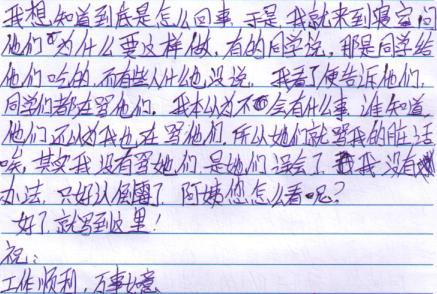 我想知道到底是怎么回事,于是我就来到寝室问
他们为什么要这样做,有的同学说,那是同学给
他们吃的,而有些人什么也没说。我看了便告诉他们,
同学们都在骂他们。我本以为不会有什么事,谁知道,
他们还以为我也在骂他们,所以她们就骂我的脏话
唉,其实我没有骂她们,是她们误会了,我没有
办法,只好认倒霉了,阿姨您怎么看呢?
好了,就写到这里!
祝:
工作顺利,万事如意